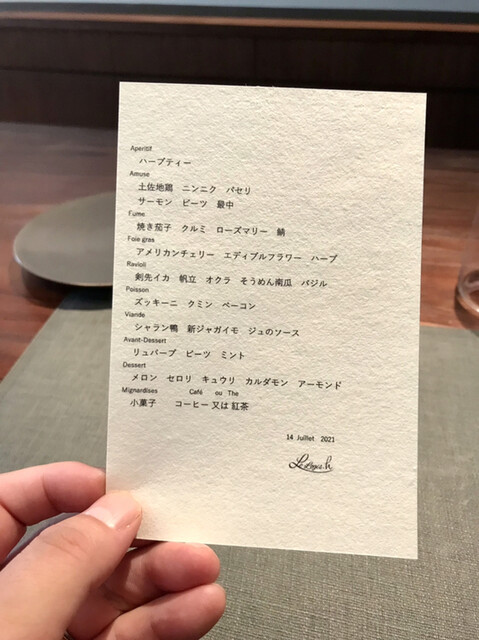 Aperitif
ハーブティー
Amuse
土佐地鶏 ニンニク パセリ
サーモン ビーツ 最中
Fume
焼き茄子 クルミ ローズマリー 鯖
Foie gras
アメリカンチェリー エディブルフラワー ハーブ
Ravioli
剣先イカ 帆立 オクラ そうめん南瓜 バジル
Poisson
ズッキーニ クミン ベーコン
Viande
シャラン鴨 新ジャガイモ ジュのソース
Avant-Dessert
リュバーブ ビーツ ミント
Dessert
メロン セロリ キュウリ カルダモン アーモンド
Mignardises Café ou The
小菓子 コーヒー 又は 紅茶
14 Juillet 2021